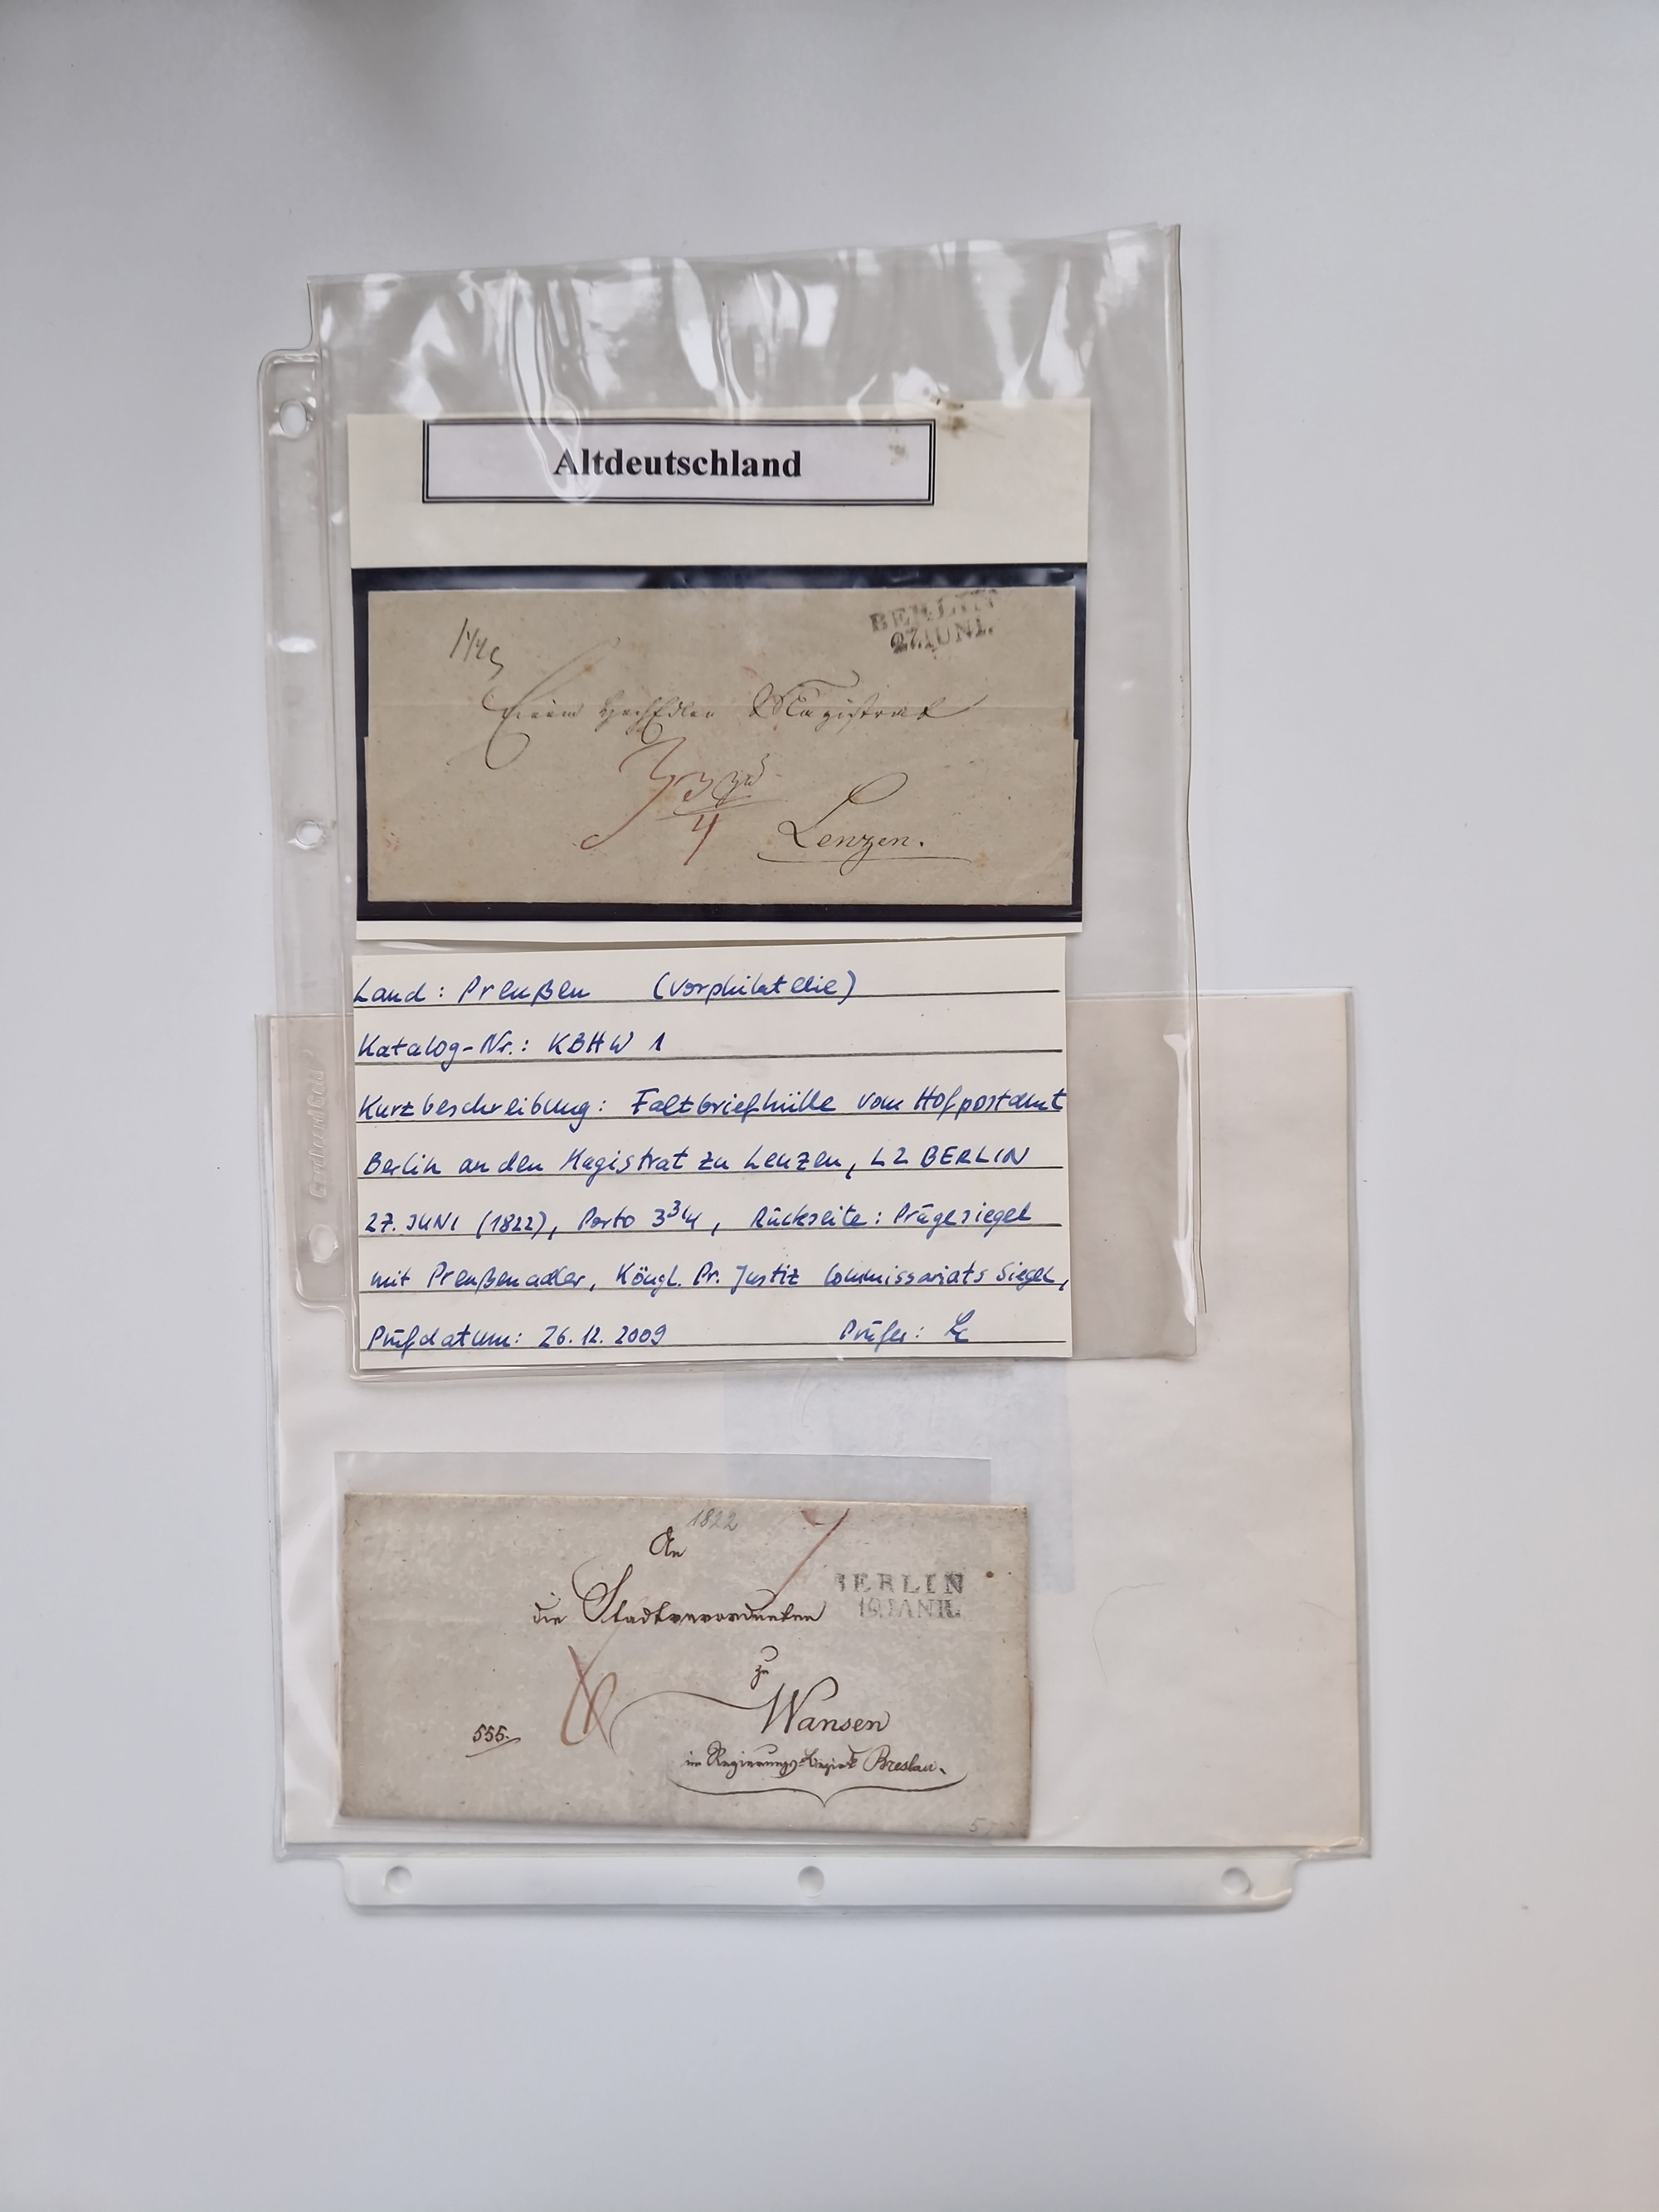 Altdeutschland
BERLIN
27.IUNI.
Einem HochEdlen Magistrat
3 3/4
Lenzen.
Land: Preußen (Vorphilatelie)
Katalog-Nr.: KBHW 1
Kurzbeschreibung: Faltbriefhülle vom Hofpostamt
Berlin an den Magistrat zu Lenzen, L2 BERLIN
27. JUNI (1822), Porto 3 3/4, Rückseite: Prägesiegel
mit Preußenadler, Köngl. Pr. Justiz Commissariats Siegel,
Prüfdatum: 26.12.2009 Prüfer:
1822
An
BERLIN
19.IANR.
die Stadtverordneten
zu
Wansen
555.
im Regierungs-Bezirk Breslau.
5